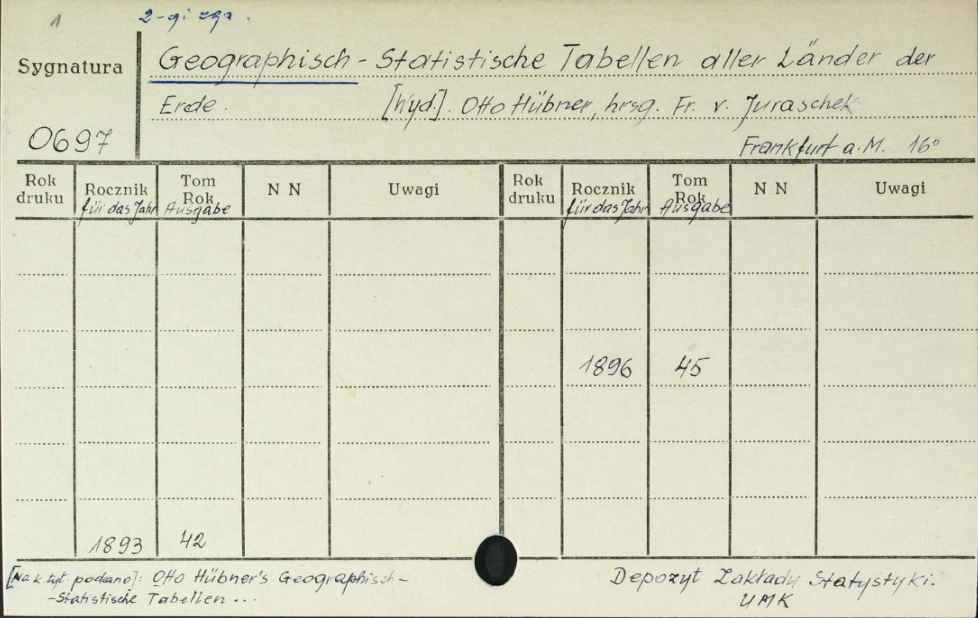 1 2-gi egz.
Sygnatura Geographisch-Statistische Tabellen aller Länder der
Erde. [Wyd]. Otto Hübner, hrsg. Fr. v. Juraschek
0697 Frankfurt a.M. 16°
Rok druku Rocznik für das Jahr Tom Rok Ausgabe N N Uwagi Rok druku Rocznik für das Jahr Tom Rok Ausgabe N N Uwagi
1896 45
1893 42
[Na k. tyt podano]: Otto Hübner's Geographisch- Depozyt Zakładu Statystyki.
-Statistische Tabellen ... UMK